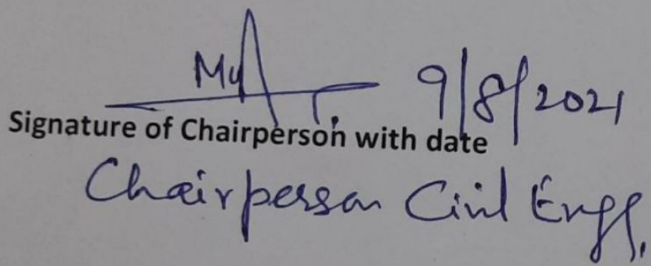 9/8/2021
Signature of Chairperson with date
Chairperson Civil Engg.